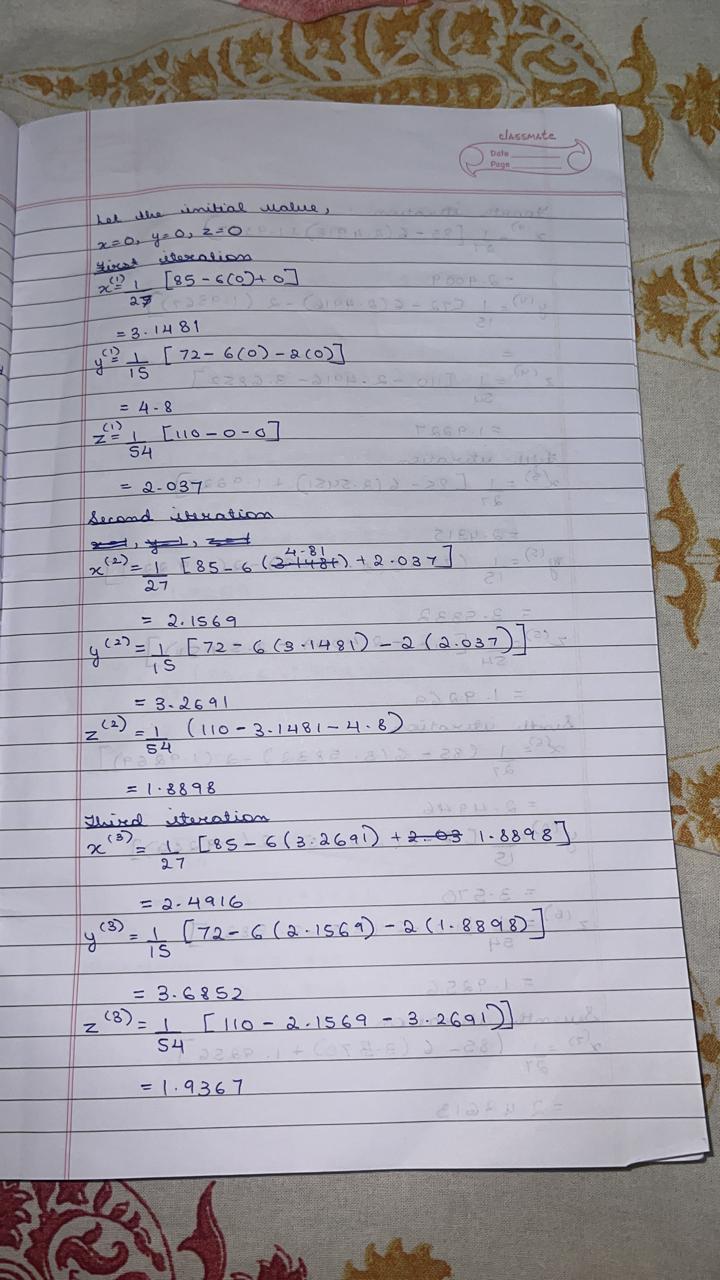 classmate
Date
Page
Let the initial value,
x=0, y=0, z=0
First iteration
x⁽¹⁾= 1/27 [85-6(0)+0]
= 3.1481
y⁽¹⁾= 1/15 [72-6(0)-2(0)]
= 4.8
z⁽¹⁾= 1/54 [110-0-0]
= 2.037
Second iteration
x⁽²⁾= 1/27 [85-6(4.81)+2.037]
= 2.1569
y⁽²⁾= 1/15 [72-6(3.1481)-2(2.037)]
= 3.2691
z⁽²⁾= 1/54 (110-3.1481-4.8)
= 1.8898
Third iteration
x⁽³⁾= 1/27 [85-6(3.2691)+1.8898]
= 2.4916
y⁽³⁾= 1/15 [72-6(2.1569)-2(1.8898)]
= 3.6852
z⁽³⁾= 1/54 [110-2.1569-3.2691)]
= 1.9367